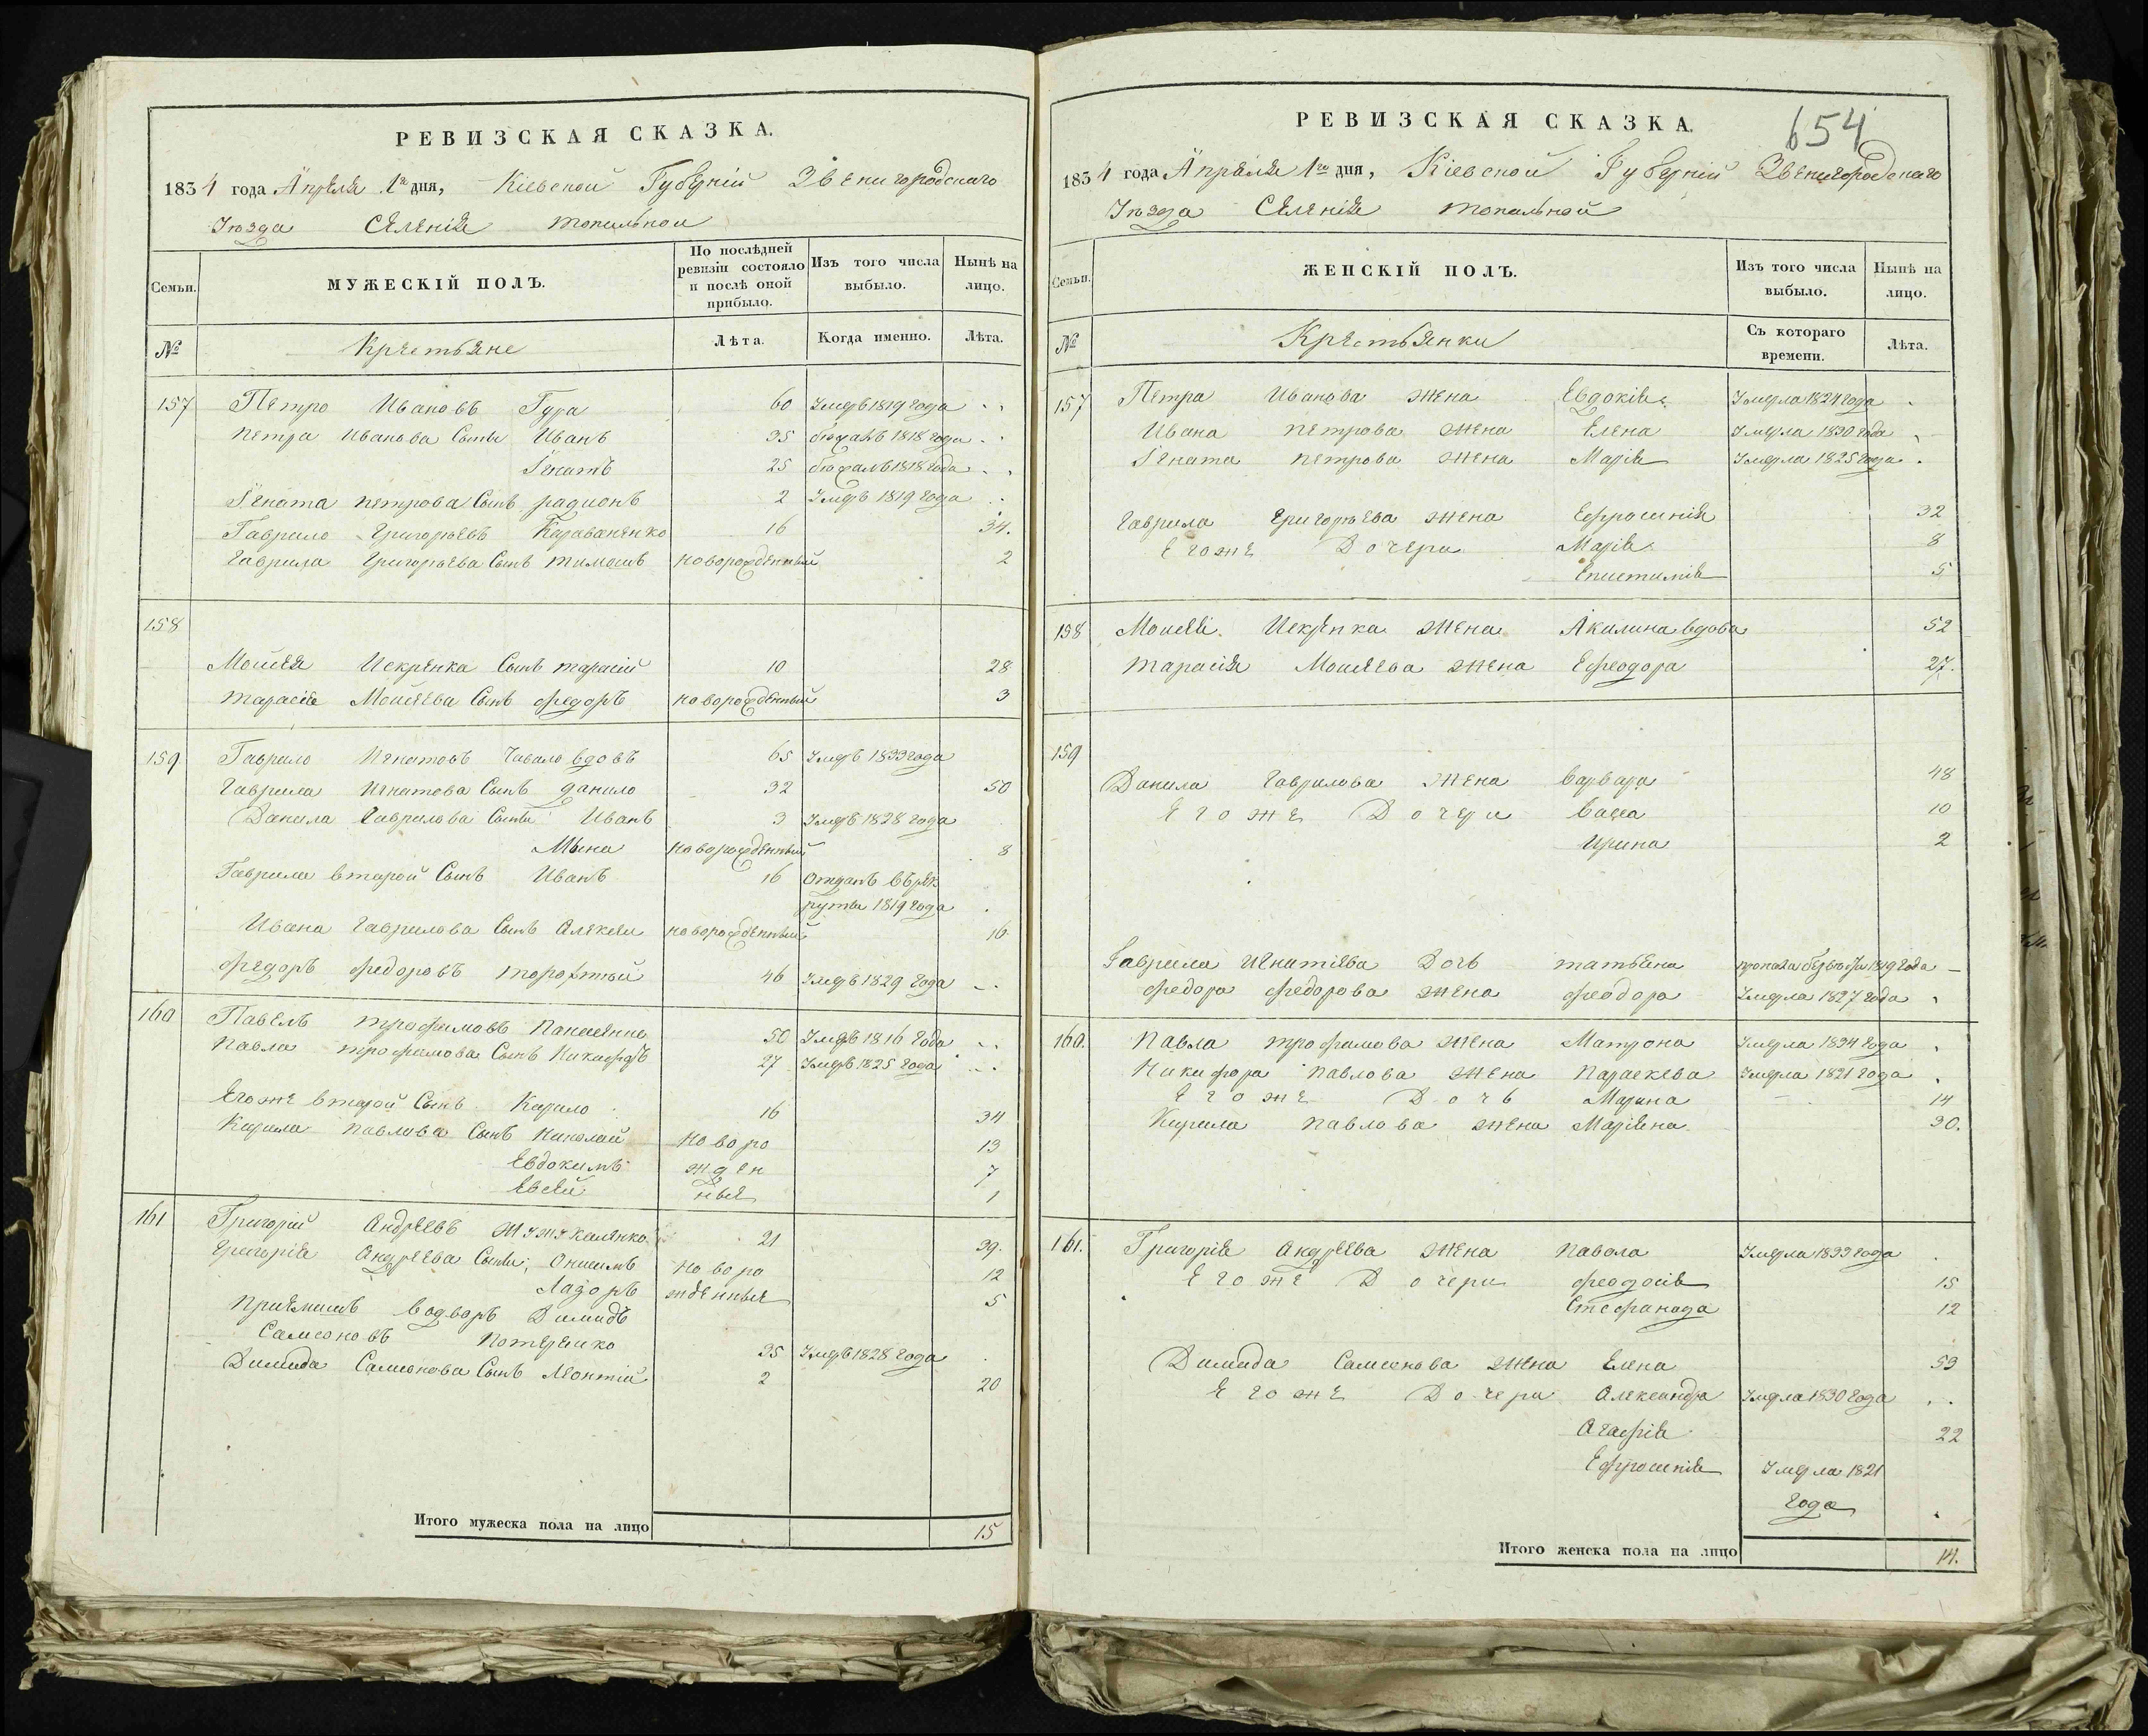 РЕВИЗСКАЯ СКАЗКА.
1834 года Апреля 1го дня, Кіевской Губерніи Звенигородскаго
Уѣзда Селенія Топильной
Семьи.
МУЖЕСКІЙ ПОЛЪ.
По послѣдней ревизіи состояло и послѣ оной прибыло.
Изъ того числа выбыло.
Нынѣ на лицо.
№
Крестьяне
Лѣта.
Когда именно.
Лѣта.
157 Петро Ивановъ Гура 60 Умеръ 1819 года
Петра Иванова Сыны Иванъ 35 бежалъ 1818 года
Игнатъ 25 бежалъ 1818 года
Игната Петрова Сынъ радионъ 2 Умеръ 1819 года
Гаврило Григорьевъ Караваненко 16 34.
Гаврила Григорьева Сынъ Тимошъ новорожденный 2
158
Мойсея Искренка Сынъ Тарасій 10 28
Тарасія Мойсеева Сынъ федоръ новорожденный 3
159 Гаврило Игнатовъ Чавало вдовъ 65 Умеръ 1833 года
Гаврила Игнатева Сынъ данило 32 50
Данила Гаврилова Сыны Иванъ 3 Умеръ 1828 года
Мына новорожденный 8
Гаврила второй Сынъ Иванъ 16 отданъ въ рек
руты 1819 года
Ивана Гаврилова Сынъ Алексеи новорожденный 16
федоръ федоровъ 46 Умеръ 1829 года
160 Павелъ трофимовъ 50 Умеръ 1816 года
Павла трофимова Сынъ Никифоръ 27 Умеръ 1825 года
Егоже второй Сынъ Кирило 16 34
Кирила Павлова Сынъ Николай ново ро 13
Евдокимъ жден 7
Евсей ныя 1
161 Григорій Андреевъ 21 39.
Григорія Андреева Сыны Онисимъ ново ро 12
Лазоръ жденныя 5
Приемишъ водворъ Димидъ
Самсоновъ 35 Умеръ 1828 года
Димида Самсонова Сынъ Леонтій 2 20
Итого мужеска пола на лицо 15
654
РЕВИЗСКАЯ СКАЗКА.
1834 года Апреля 1го дня, Кіевской Губерніи Звенигородскаго
Уѣзда Селенія Топильной
Семьи.
ЖЕНСКІЙ ПОЛЪ.
Изъ того числа выбыло.
Нынѣ на лицо.
№
Крестьянки
Съ котораго времени.
Лѣта.
157 Петра Иванова жена Евдокія Умерла 1824 года
Ивана петрова жена Елена Умерла 1830 года
Игната петрова жена Марія Умерла 1825 года
Гаврила Григорьева жена Ефросинія 32
Егоже Дочери Марія 8
Епистимія 5
158 Моисея Искренка жена Акилина вдова 52
Тарасія Моисеева жена Ефеодора 27.
159
Данила Гаврилова жена Варвара 48
Егоже Дочери Васса 10
Ирина 2
Гаврила Игнатіева Дочь татьяна 1819 года
федора федорова жена феодора Умерла 1827 года
160. Павла трофимова жена Матрона Умерла 1834 года
Никифора Павлова жена Параскева Умерла 1821 года
Егоже Дочь Марина 14
Кирила Павлова жена Маріяна 30.
161. Григорія Андреева жена Павола Умерла 1833 года
Егоже Дочери феодосія 15
Стефанида 12
Димида Самсонова жена Елена 53
Егоже Дочери Александра Умерла 1830 года
Агафія 22
Ефросинія Умерла 1821
года
Итого женска пола на лицо 14.